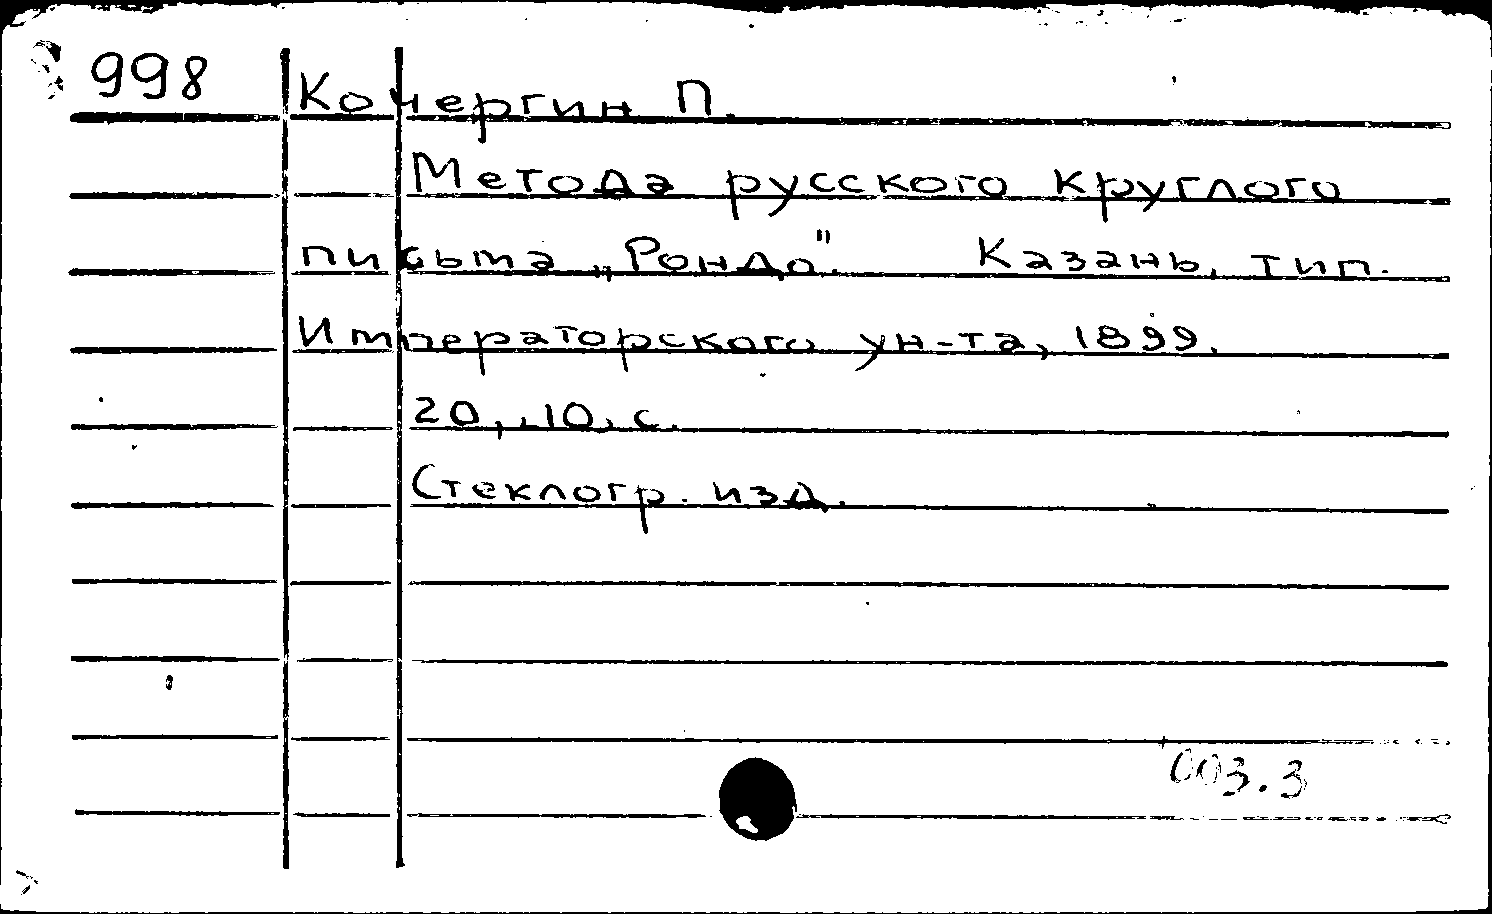 998
Кочергин П.
Метода русского круглого
письма „Рондо". Казань, тип.
Императорского ун-та, 1899.
20, 10, с.
Стеклогр. изд.
003.3